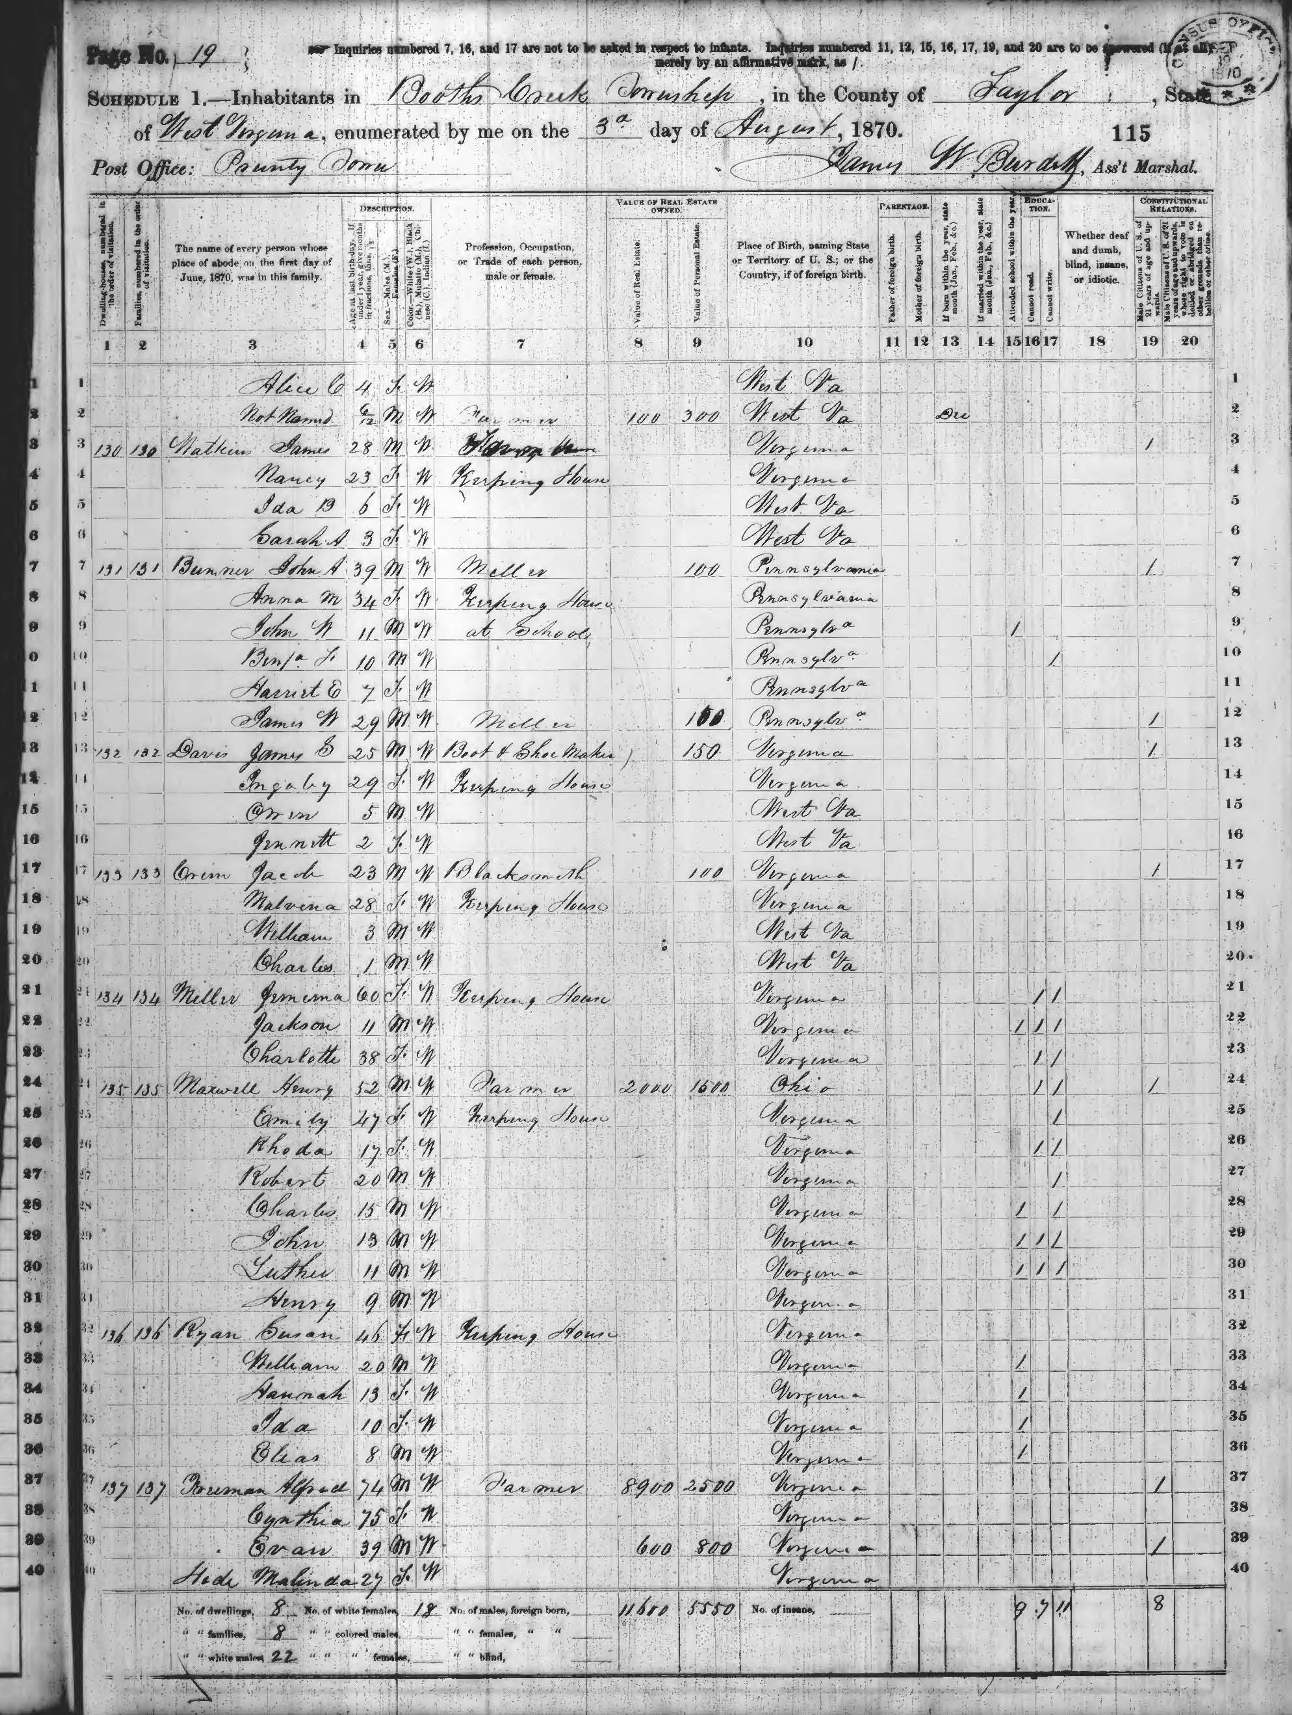 Page No. 19
Inquiries numbered 7, 16, and 17 are not to be asked in respect to infants. Inquiries numbered 11, 12, 15, 16, 17, 19, and 20 are to be answered (if at all)
merely by an affirmative mark, as /.
SCHEDULE 1.—Inhabitants in Booths Creek Township, in the County of Taylor, State
of West Virginia, enumerated by me on the 3d day of August, 1870. 115
Post Office: Prunty Town James W. Burdett, Ass't Marshal.
DESCRIPTION. VALUE OF REAL ESTATE OWNED. PARENTAGE. EDUCATION. CONSTITUTIONAL RELATIONS.
Dwelling-houses, numbered in the order of visitation.
Families, numbered in the order of visitation.
The name of every person whose place of abode on the first day of June, 1870, was in this family.
Age at last birth-day. If under 1 year, give months in fractions, thus, 3/12
Sex.—Males (M.), Females (F.)
Color.—White (W.), Black (B.), Mulatto (M.), Chinese (C.), Indian (I.)
Profession, Occupation, or Trade of each person, male or female.
Value of Real Estate.
Value of Personal Estate.
Place of Birth, naming State or Territory of U. S.; or the Country, if of foreign birth.
Father of foreign birth.
Mother of foreign birth.
If born within the year, state month (Jan., Feb., &c.)
If married within the year, state month (Jan., Feb., &c.)
Attended school within the year.
Cannot read.
Cannot write.
Whether deaf and dumb, blind, insane, or idiotic.
Male Citizens of U. S. of 21 years of age and upwards.
Male Citizens of U. S. of 21 years of age and upwards, whose right to vote is denied or abridged on other grounds than rebellion or other crime.
1 2 3 4 5 6 7 8 9 10 11 12 13 14 15 16 17 18 19 20
1 Alice C 4 F W West Va 1
2 Not Named 6/12 M W Farmer 100 300 West Va Dec 2
3 130 130 Watkins James 28 M W Virginia / 3
4 Nancy 23 F W Keeping House Virginia 4
5 Ida B 6 F W West Va 5
6 Sarah A 3 F W West Va 6
7 131 131 Bunner John A 39 M W Miller 100 Pennsylvania / 7
8 Anna M 34 F W Keeping House Pennsylvania 8
9 John W 11 M W at School Pennsylva / 9
10 Benja F 10 M W Pennsylva / 10
11 Harriet E 7 F W Pennsylva 11
12 James W 29 M W Miller 100 Pennsylva / 12
13 132 132 Davis James E 25 M W Boot & Shoe Maker 150 Virginia / 13
14 Ingaby 29 F W Keeping House Virginia 14
15 Orren 5 M W West Va 15
16 Jennett 2 F W West Va 16
17 133 133 Crim Jacob 23 M W Blacksmith 100 Virginia / 17
18 Malvena 28 F W Keeping House Virginia 18
19 William 3 M W West Va 19
20 Charles 1 M W West Va 20
21 134 134 Miller Jemema 60 F W Keeping House Virginia / / 21
22 Jackson 11 M W Virginia / / / 22
23 Charlotte 38 F W Virginia / / 23
24 135 135 Maxwell Henry 52 M W Farmer 2000 1600 Ohio / / / 24
25 Emily 47 F W Keeping House Virginia / 25
26 Rhoda 17 F W Virginia / / 26
27 Robert 20 M W Virginia / 27
28 Charles 15 M W Virginia / / 28
29 John 13 M W Virginia / / / 29
30 Luther 11 M W Virginia / / / 30
31 Henry 9 M W Virginia 31
32 136 136 Ryan Susan 46 F W Keeping House Virginia 32
33 William 20 M W Virginia / 33
34 Hannah 13 F W Virginia / 34
35 Ida 10 F W Virginia / 35
36 Elias 8 M W Virginia / 36
37 137 137 Foreman Alfred 74 M W Farmer 8900 2500 Virginia / 37
38 Cynthia 75 F W Virginia 38
39 Evan 39 M W 600 800 Virginia / 39
40 Malinda 27 F W Virginia 40
No. of dwellings, 8 No. of white females, 18 No. of males, foreign born, 11600 5550 No. of insane, 9 7 11 8
" " families, 8 " " colored males, " " females, " "
" " white males, 22 " " " females, " " blind,